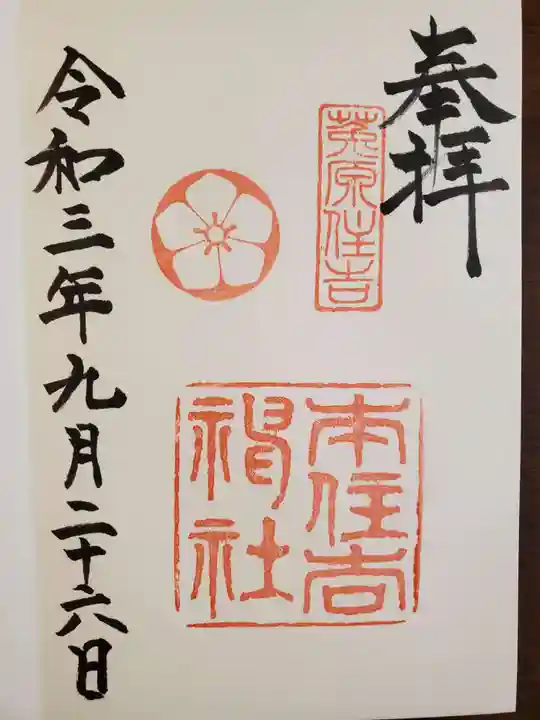 奉拝
莵原住吉
本住吉
神社
令和三年九月二十六日